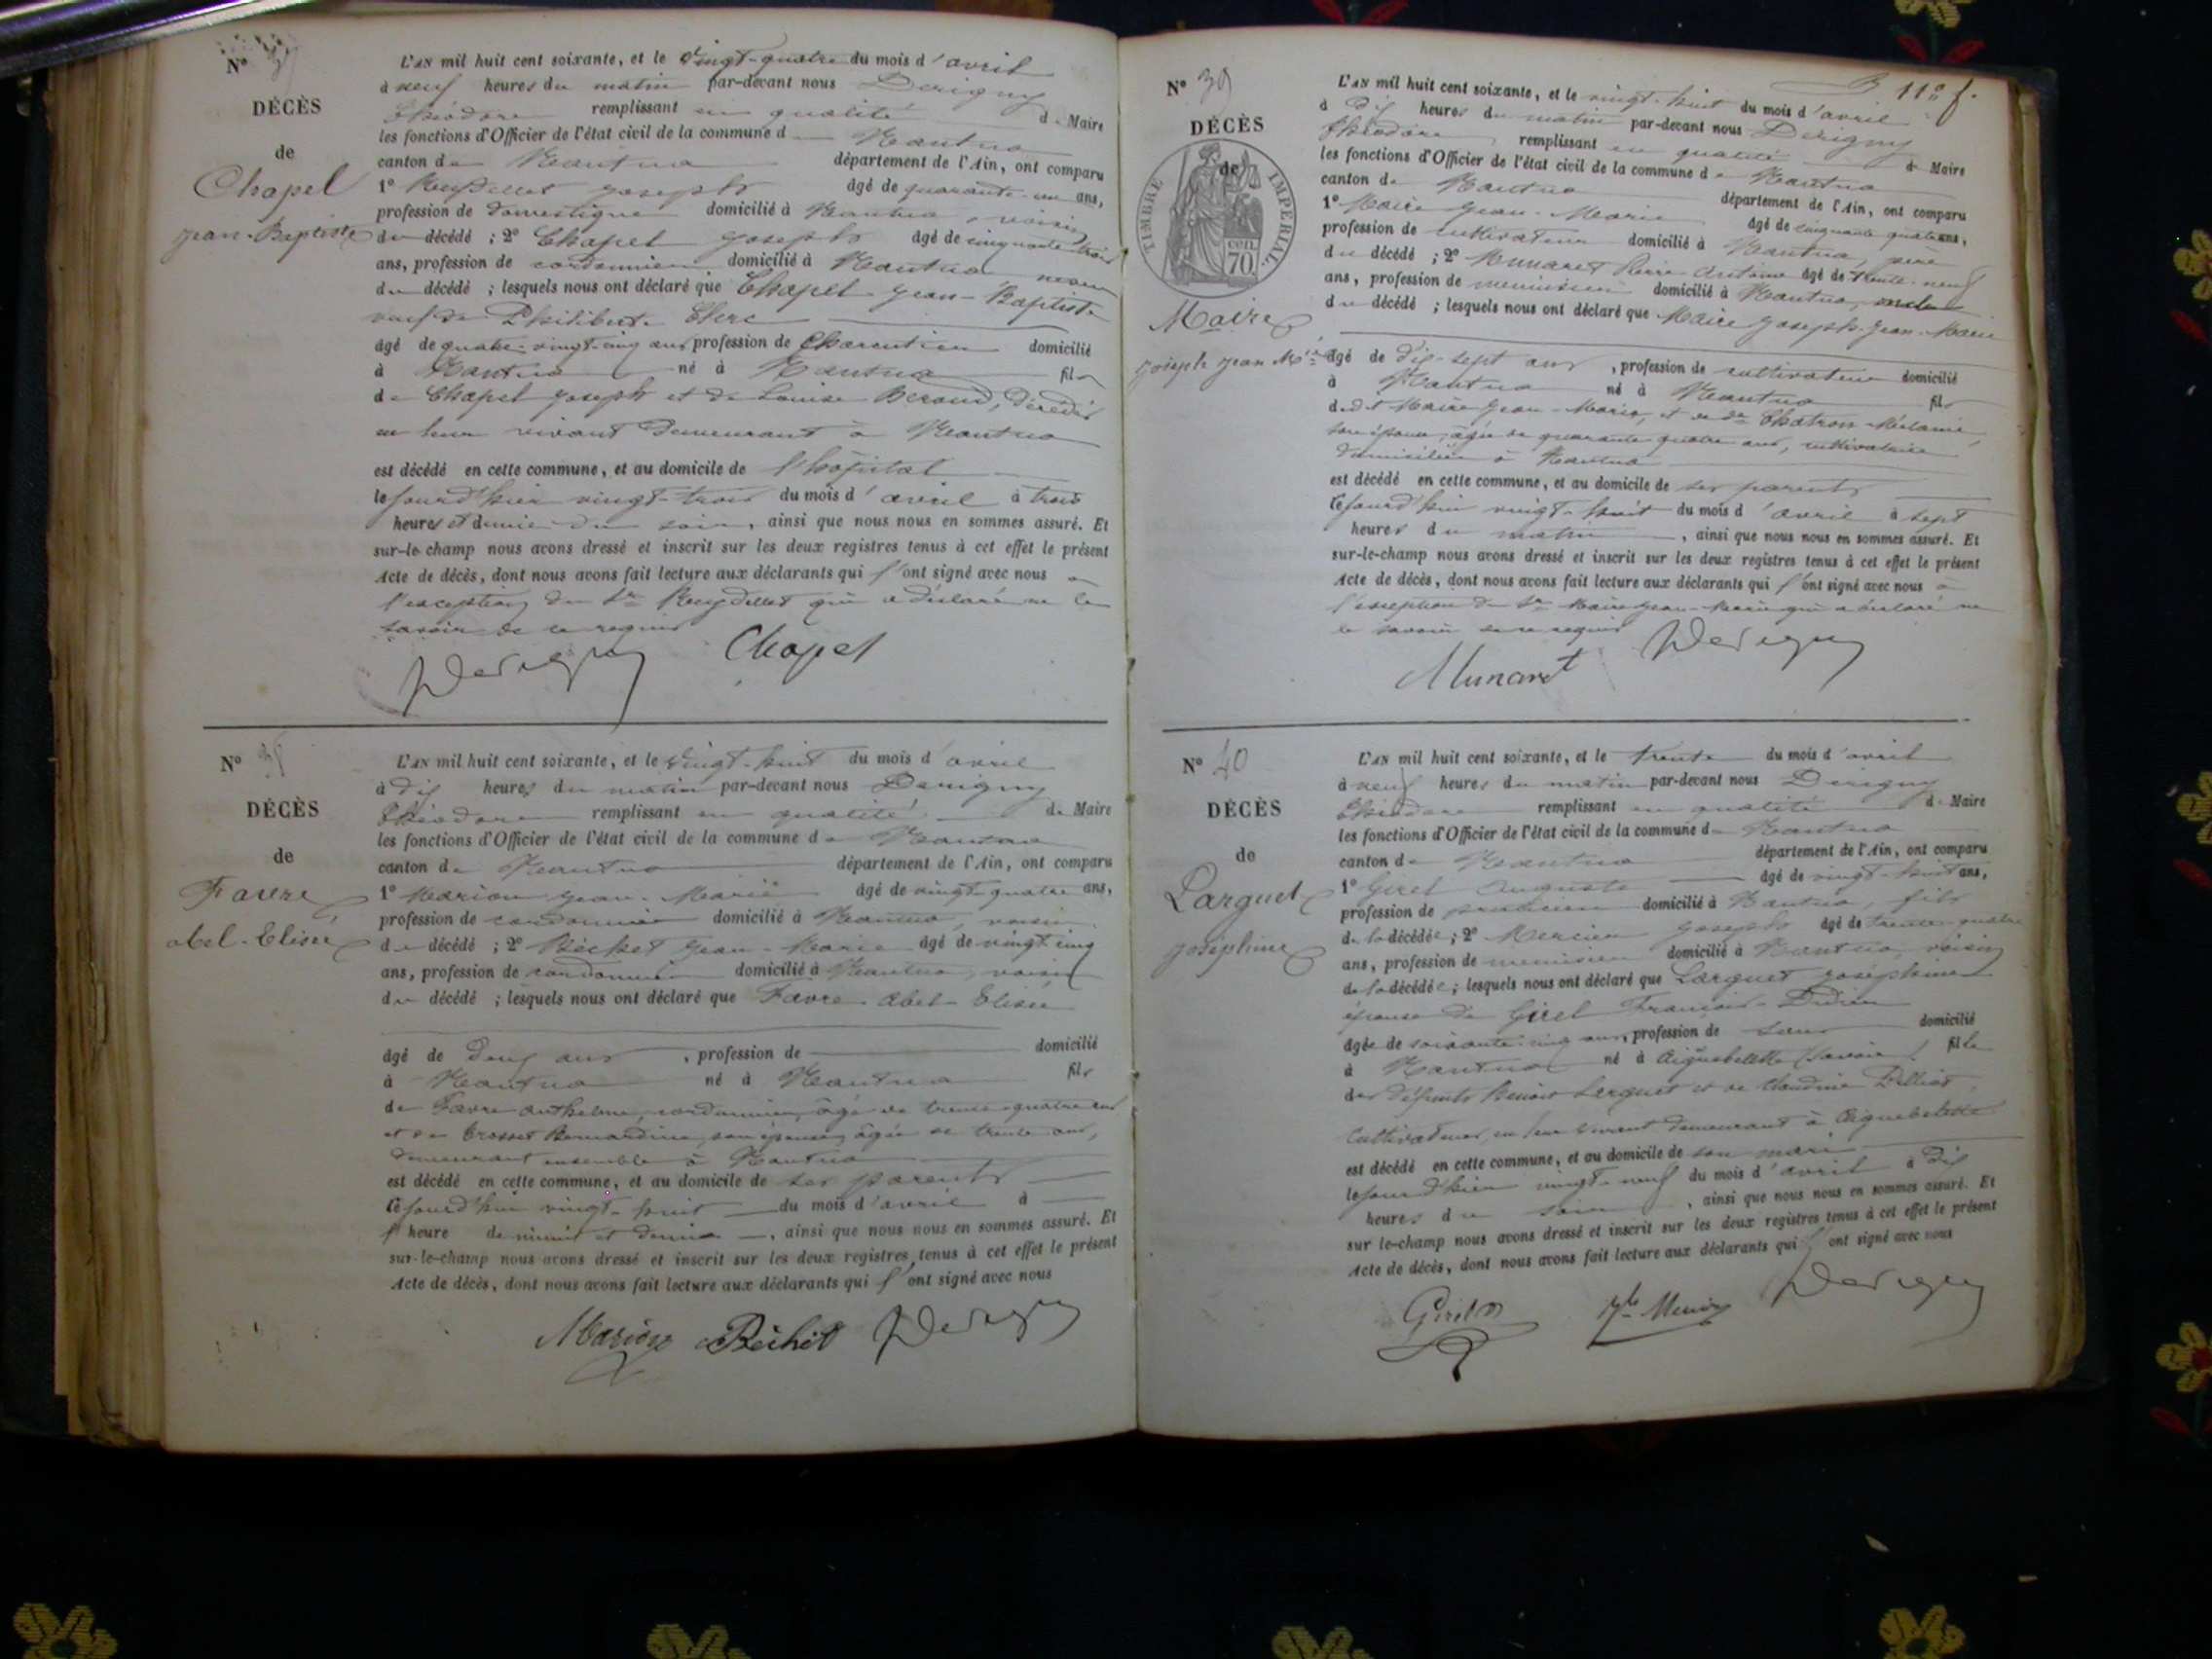 N° 37
DÉCÈS
de
Chapel
Jean-Baptiste
L'AN mil huit cent soixante, et le vingt-quatre du mois d'avril
à neuf heures du matin par-devant nous Derigny
Théodore remplissant en qualité de Maire
les fonctions d'Officier de l'état civil de la commune de Nantua
canton de Nantua département de l'Ain, ont comparu
1° Joseph âgé de quarante-un ans,
profession de domestique domicilié à Nantua, voisin
du décédé ; 2° Chapel Joseph âgé de cinquante-trois
ans, profession de cordonnier domicilié à Nantua neveu
du décédé ; lesquels nous ont déclaré que Chapel Jean-Baptiste
veuf de Philiberte Clerc
âgé de quatre-vingt-cinq ans, profession de Charcutier domicilié
à Nantua né à Nantua fils
de Chapel Joseph et de Louise Beroud, décédés
en leur vivant demeurant à Nantua
est décédé en cette commune, et au domicile de l'hôpital
le jourd'hier vingt-trois du mois d'avril à trois
heures et demie du soir, ainsi que nous nous en sommes assuré. Et
sur-le-champ nous avons dressé et inscrit sur les deux registres tenus à cet effet le présent
Acte de décès, dont nous avons fait lecture aux déclarants qui l'ont signé avec nous à
l'exception du Sr qui a déclaré ne le
savoir de ce requis
Derigny Chapel
N° 38
DÉCÈS
de
Favre
abel-Elisée
L'AN mil huit cent soixante, et le vingt-huit du mois d'avril
à dix heures du matin par-devant nous Derigny
Théodore remplissant en qualité de Maire
les fonctions d'Officier de l'état civil de la commune de Nantua
canton de Nantua département de l'Ain, ont comparu
1° Marion Jean-Marie âgé de vingt-quatre ans,
profession de cordonnier domicilié à Nantua, voisin
du décédé ; 2° Béchet Jean-Marie âgé de vingt cinq
ans, profession de cordonnier domicilié à Nantua, voisin
du décédé ; lesquels nous ont déclaré que Favre abel-Elisée
âgé de deux ans, profession de domicilié
à Nantua né à Nantua fils
de Favre anthelme, cordonnier, âgé de trente-quatre ans
et de Brosset Bernardine, son épouse, âgée de trente ans,
demeurant ensemble à Nantua
est décédé en cette commune, et au domicile de ses parents
cejourd'hui vingt-huit du mois d'avril à
l'heure de minuit et demie, ainsi que nous nous en sommes assuré. Et
sur-le-champ nous avons dressé et inscrit sur les deux registres tenus à cet effet le présent
Acte de décès, dont nous avons fait lecture aux déclarants qui l'ont signé avec nous
Marion Béchet Derigny
11e f.
N° 39
DÉCÈS
de
TIMBRE IMPERIAL
cen. 70
Maire
Joseph Jean Mie
L'AN mil huit cent soixante, et le vingt-huit du mois d'avril
à dix heures du matin par-devant nous Derigny
Théodore remplissant en qualité de Maire
les fonctions d'Officier de l'état civil de la commune de Nantua
canton de Nantua département de l'Ain, ont comparu
1° Maire Jean-Marie âgé de cinquante quatre ans,
profession de cultivateur domicilié à Nantua, père
du décédé ; 2° Munaret Pierre Antoine âgé de trente-neuf
ans, profession de menuisier domicilié à Nantua,
du décédé ; lesquels nous ont déclaré que Maire Joseph-Jean-Marie
âgé de dix-sept ans, profession de cultivateur domicilié
à Nantua né à Nantua fils
dudit Maire Jean-Marie, et de de Chatron Mélanie,
son épouse, âgée de quarante quatre ans, cultivatrice
domiciliée à Nantua
est décédé en cette commune, et au domicile de ses parents
cejourd'hui vingt-huit du mois d'avril à sept
heures du matin, ainsi que nous nous en sommes assuré. Et
sur-le-champ nous avons dressé et inscrit sur les deux registres tenus à cet effet le présent
Acte de décès, dont nous avons fait lecture aux déclarants qui l'ont signé avec nous à
l'exception du Sr Maire Jean-Marie qui a déclaré ne
le savoir de ce requis
Munaret Derigny
N° 40
DÉCÈS
de
Larguet
Joséphine
L'AN mil huit cent soixante, et le trente du mois d'avril
à neuf heures du matin par-devant nous Derigny
Théodore remplissant en qualité de Maire
les fonctions d'Officier de l'état civil de la commune de Nantua
canton de Nantua département de l'Ain, ont comparu
1° Girel Auguste âgé de vingt-huit ans,
profession de praticien domicilié à Nantua, fils
de la décédée ; 2° Mercier Joseph âgé de trente-quatre
ans, profession de menuisier domicilié à Nantua, voisin
de la décédée ; lesquels nous ont déclaré que Larguet Joséphine
épouse de Girel François-Didier
âgée de soixante-cinq ans, profession de domicilié
à Nantua né à Aiguebellette (Savoie) fille
des défunts Benoit Larguet et de Claudine
cultivateurs, en leur vivant demeurant à Aiguebelette
est décédé en cette commune, et au domicile de son mari
le jour d'hier vingt-neuf du mois d'avril à dix
heures du soir, ainsi que nous nous en sommes assuré. Et
sur le-champ nous avons dressé et inscrit sur les deux registres tenus à cet effet le présent
Acte de décès, dont nous avons fait lecture aux déclarants qui l'ont signé avec nous
Girel Derigny